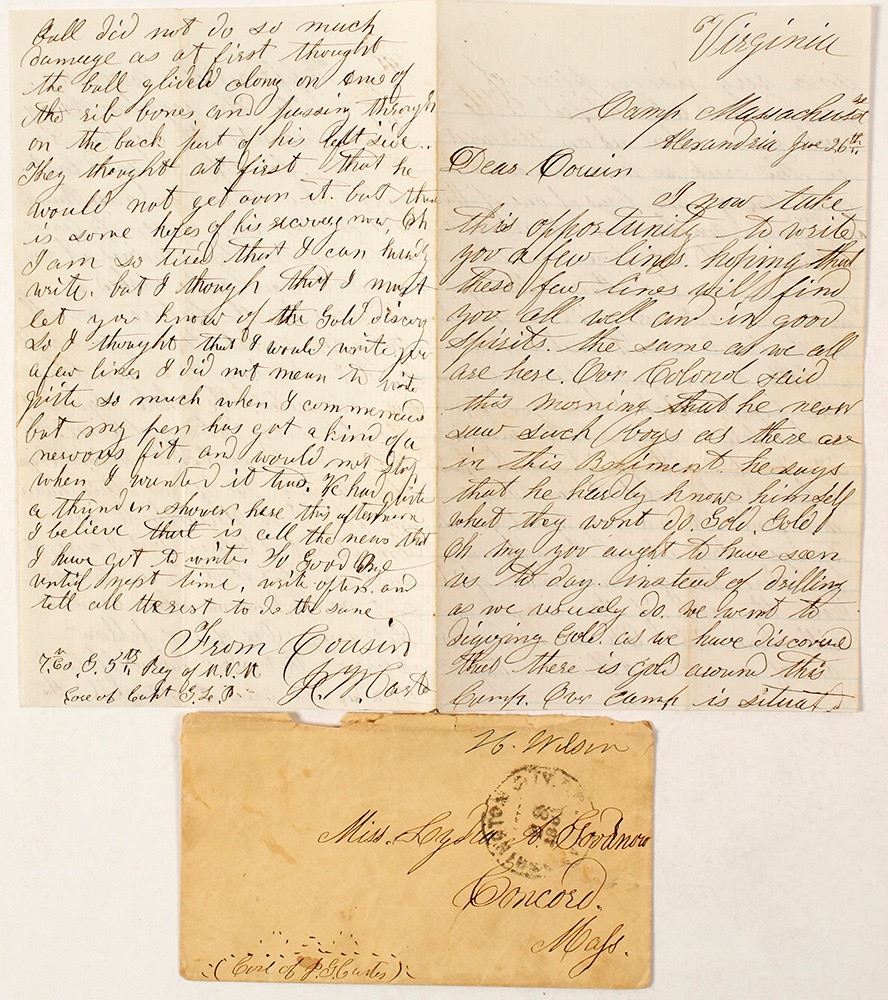 Virginia
Camp Massachusetts
Alexandria June 26th
Dear Cousin
I now take
this opportunity to write
you a few lines. hoping that
these few lines will find
you all well and in good
spirits. the same as we all
are here. Our Colonel said
this morning that he never
saw such boys as there are
in this Regiment. he says
that he hardly know himself
what they wont do. Gold. Gold
Oh my you aught to have seen
us to day. instead of drilling
as we usuely do. we went to
digging Gold. as we have discovered
that there is gold around this
Camp. Our Camp is situated
Ball did not do so much
damage as at first thought
the ball glided along on one of
the rib bones and passing through
on the back part of his left side.
They thought at first that he
would not get over it. but there
is some hopes of his recovery now. Oh
I am so tired that I can hardly
write. but I though that I must
let you know of the Gold discovery
So I thought that I would write you
a few lines I did not mean to write
quite so much when I commenced
but my pen has got a kind of a
nervous fit. and would not stop
when I wanted it two. We had quite
a thunder shower here this afternoon
I believe that is all the news that
I have got to write. So Good Bye
until next time. write often. and
tell all the rest to do the same
From Cousin
Co. G. 5th Reg of M.V.M
Care of Capt G. L. P.
H. Wilson
Miss. Lydia Goodnow
Concord.
Mass.